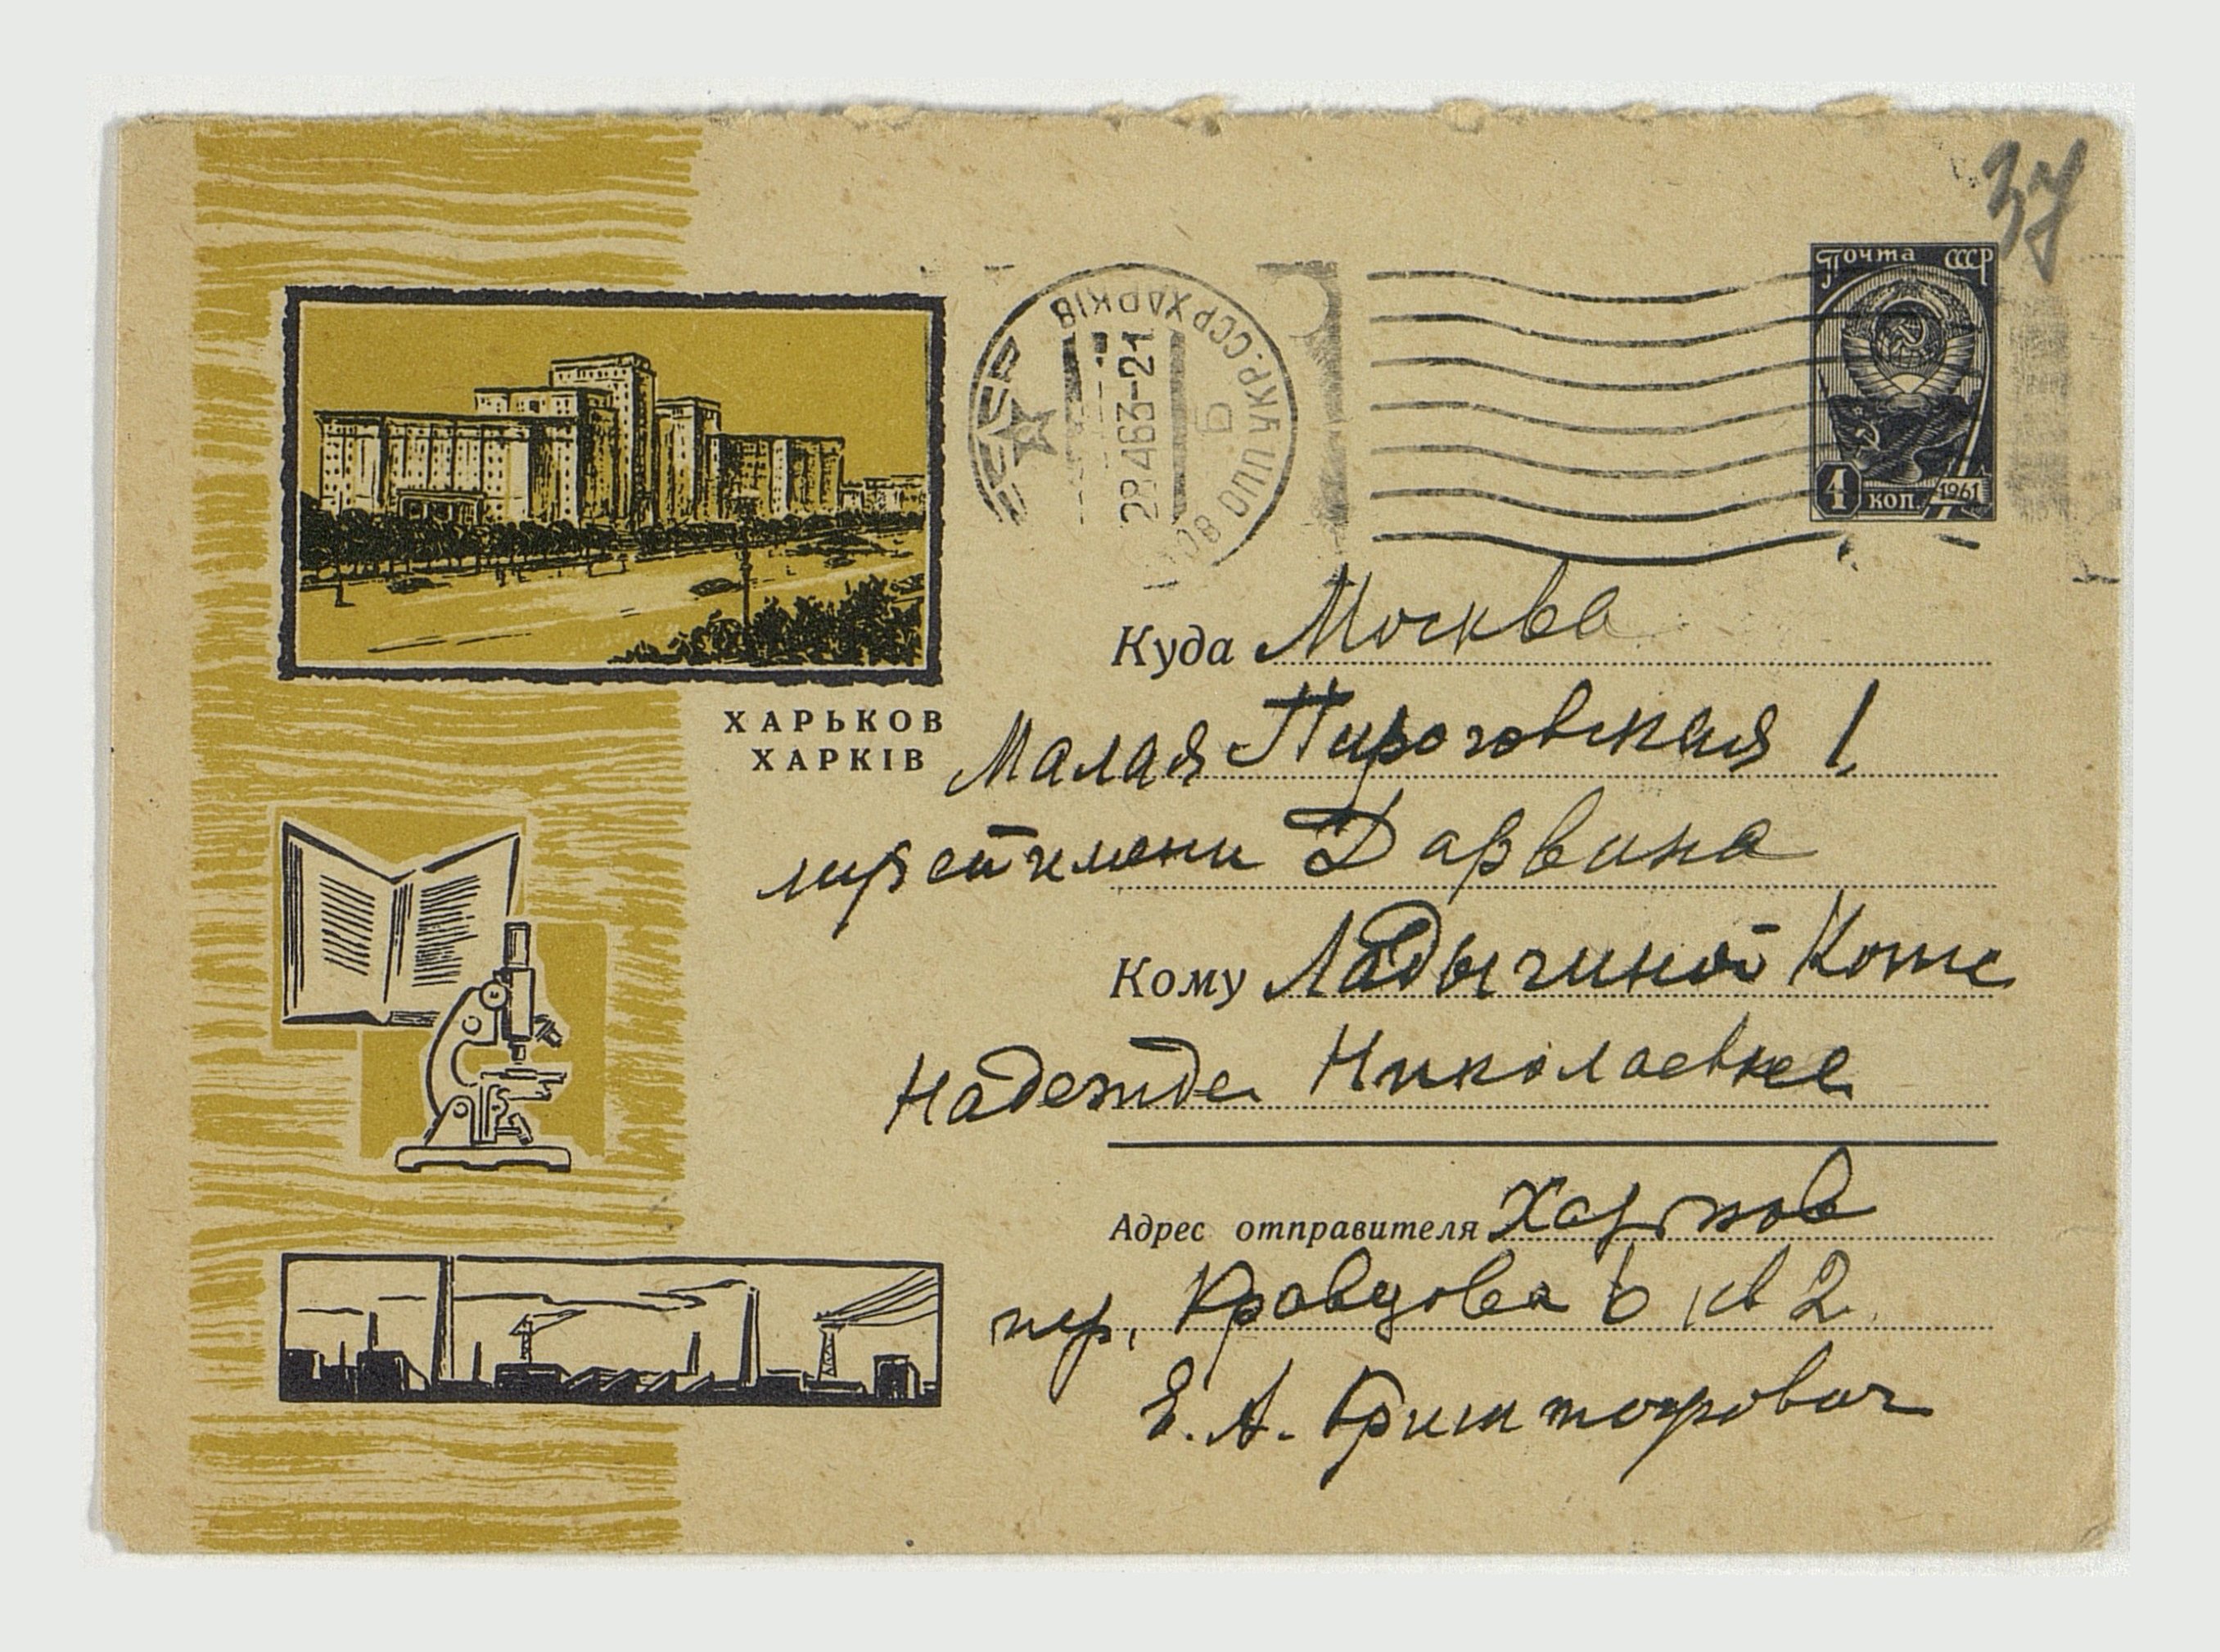 37
Почта СССР
4 коп. 1961
СССР
УКР. ССР ХАРКІВ
28 4 63-21
Б
ОПП
Куда Москва
ХАРЬКОВ
ХАРКІВ
Малая Пироговская 1,
имени Дарвина
Кому Ладыгиной Котс
Надежде Николаевне
Адрес отправителя Харьков
пер. Кравцова 6 кв 2
Е. А.